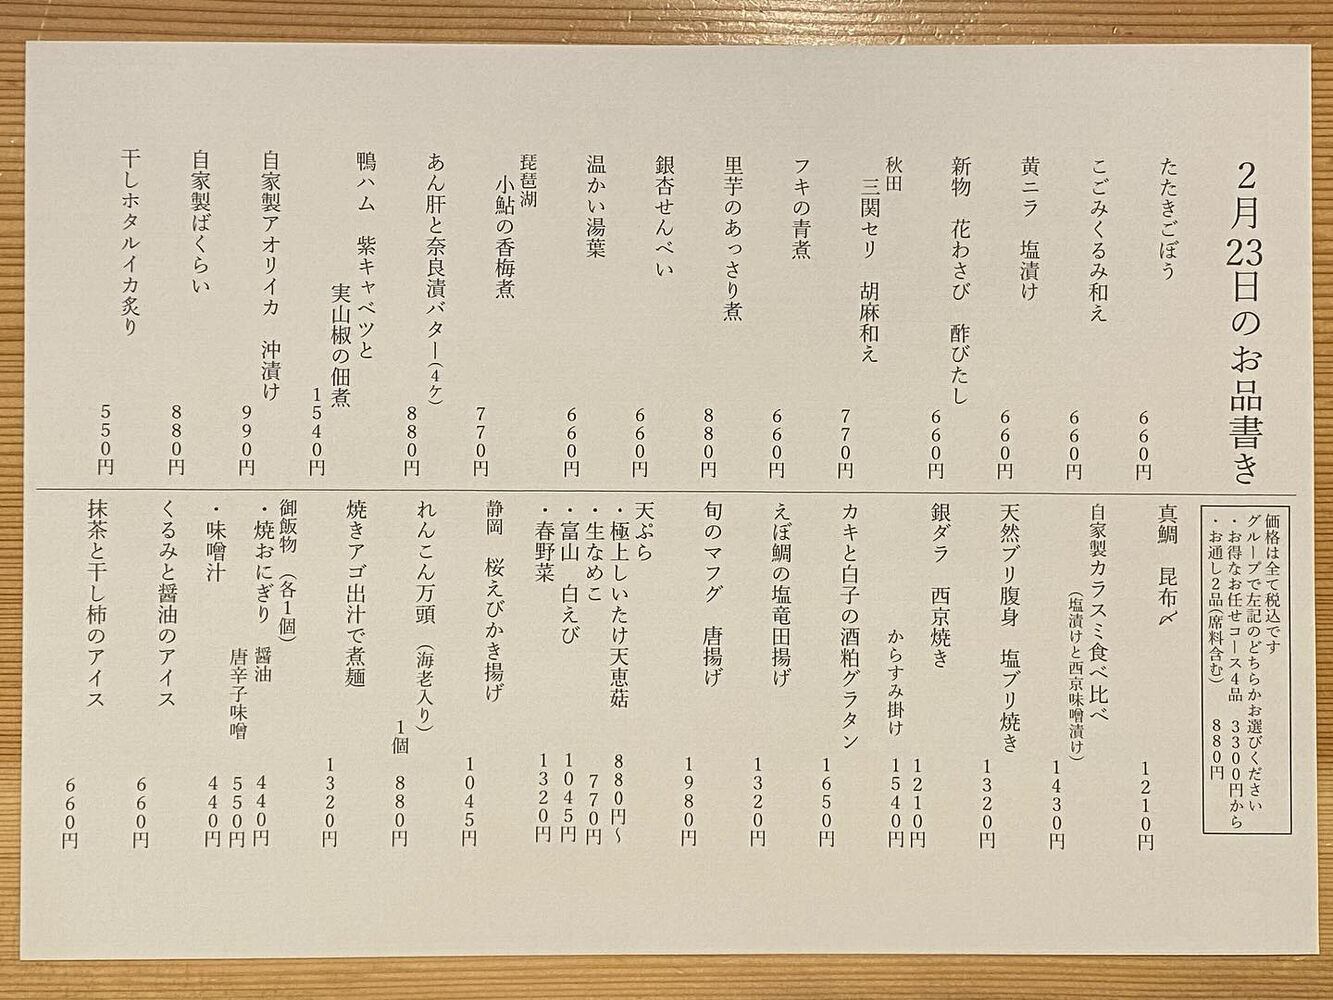 2月23日のお品書き
たたきごぼう
660円
こごみくるみ和え
660円
黄ニラ　塩漬け
660円
新物　花わさび　酢びたし
660円
秋田
三関セリ　胡麻和え
770円
フキの青煮
660円
里芋のあっさり煮
880円
銀杏せんべい
660円
温かい湯葉
660円
琵琶湖
小鮎の香梅煮
770円
あん肝と奈良漬バター(4ケ)
880円
鴨ハム　紫キャベツと
実山椒の佃煮
1540円
自家製アオリイカ　沖漬け
990円
自家製ばくらい
880円
干しホタルイカ炙り
550円
価格は全て税込です
グループで左記のどちらかお選びください
・お得なお任せコース4品　3300円から
・お通し2品(席料含む)　880円
真鯛　昆布〆
1210円
自家製カラスミ食べ比べ
(塩漬けと西京味噌漬け)
1430円
天然ブリ腹身　塩ブリ焼き
1320円
銀ダラ　西京焼き
1210円
からすみ掛け
1540円
カキと白子の酒粕グラタン
1650円
えぼ鯛の塩竜田揚げ
1320円
旬のマフグ　唐揚げ
1980円
天ぷら
・極上しいたけ天恵菇　880円〜
・生なめこ　770円
・富山　白えび　1045円
・春野菜　1320円
静岡　桜えびかき揚げ
1045円
れんこん万頭　(海老入り)
1個　880円
焼きアゴ出汁で煮麺
1320円
御飯物　(各1個)
・焼おにぎり　醤油　440円
唐辛子味噌　550円
・味噌汁　440円
くるみと醤油のアイス
660円
抹茶と干し柿のアイス
660円